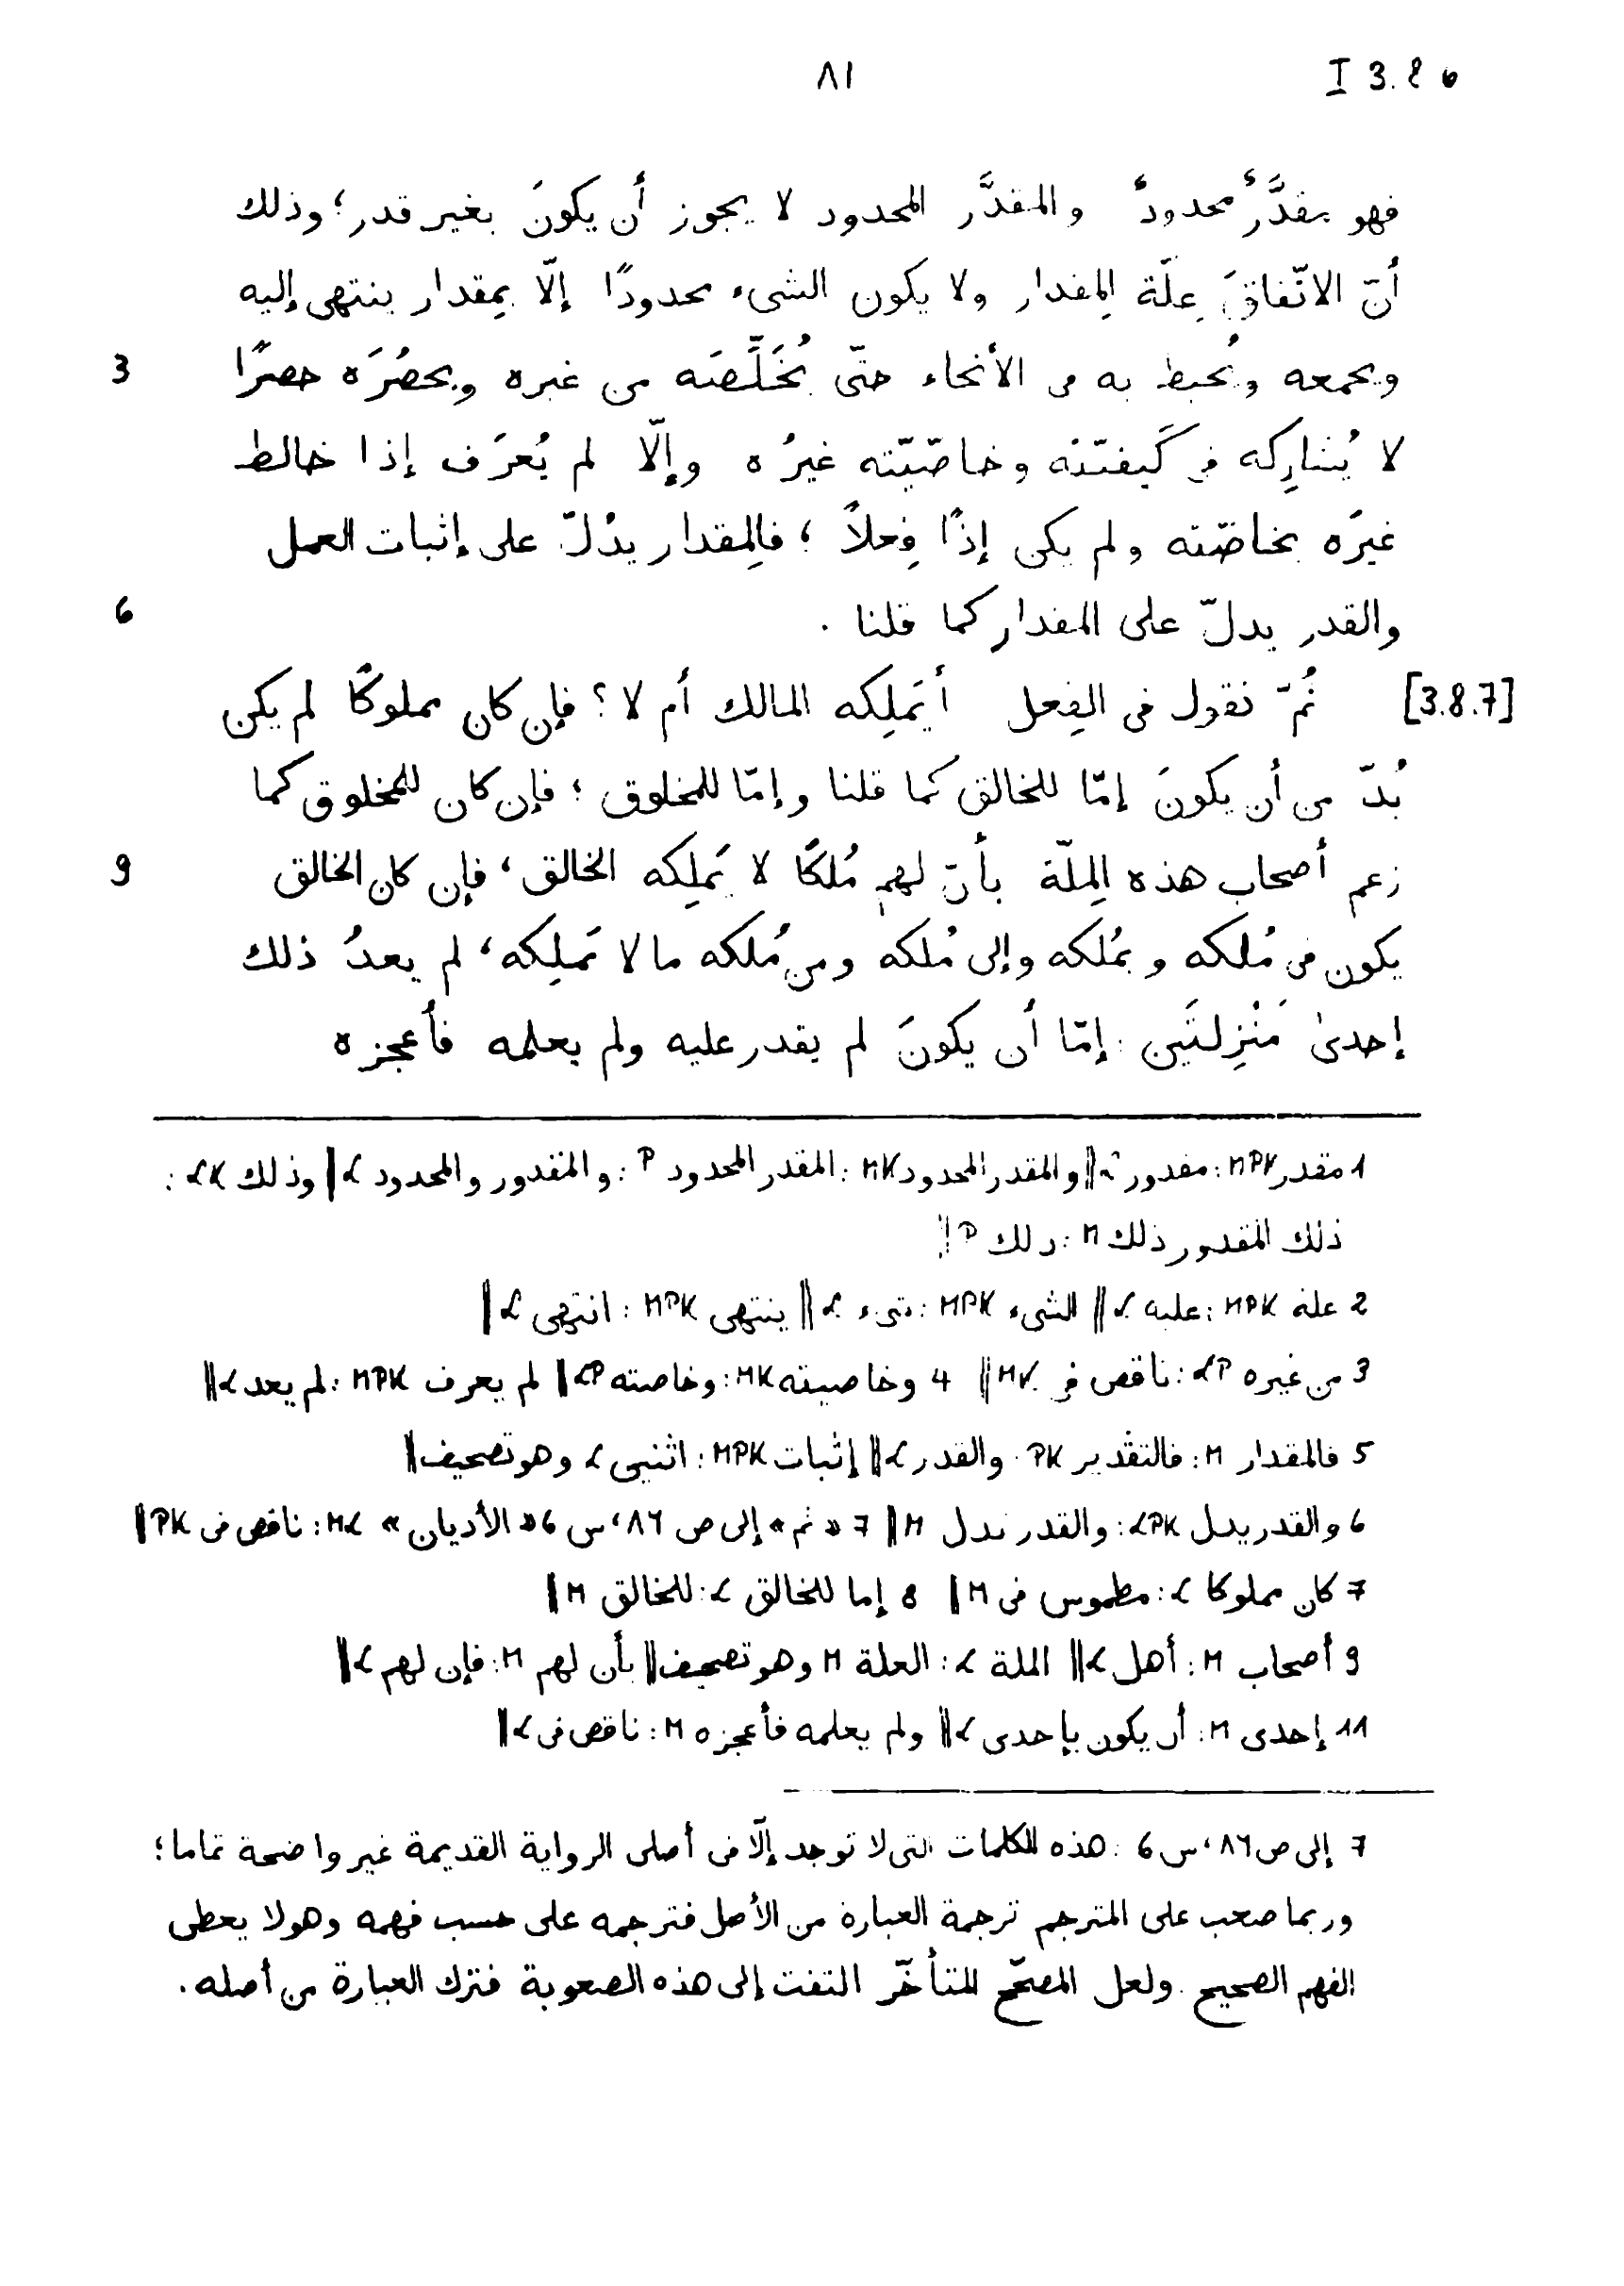 I 3.8 6
٨١
فهو مقدَّرٌ محدودٌ والمقدَّر المحدود لا يجوز أن يكونَ بغير قدر؛ وذلك
أنّ الاتّفاقَ عِلّة المِقدار ولا يكون الشىء محدودًا إلّا بمِقدار ينتهى إليه
3 ويجمعه ويُحيط به من الأنحاء حتّى يُخَلِّصَه من غيره ويحصُرَه حصرًا
لا يُشارِكه فى كَيفيّته وخاصّيّته غيرُه وإلّا لم يُعرَف إذا خالط
غيرَه بخاصّته ولم يكن إذًا فِعلاً؛ فالمِقدار يدُلّ على إثبات العمل
6 والقدر يدلّ على المقدار كما قلنا.
[3.8.7] ثُمّ نقول فى الفِعل أيَملِكه المالك أم لا؟ فإن كان مملوكًا لم يكن
بُدّ من أن يكونَ إمّا للخالق كما قلنا وإمّا للمخلوق؛ فإن كان للمخلوق كما
9 زعم أصحاب هذه المِلّة بأنّ لهم مُلكًا لا يَملِكه الخالق، فإن كان الخالق
يكون فى مُلكه وبمُلكه وإلى مُلكه ومن مُلكه ما لا يَملِكه، لم يعدُ ذلك
إحدىٰ مَنْزِلتَين: إمّا أن يكونَ لم يقدر عليه ولم يعلمه فأعجزه
1 مقدر MPK: مقدور L || والمقدر المحدود MK: المقدر المحدود P: والمقدور والمحدود L || وذلك LK:
ذلك المقدور ذلك M: ذلك P ||
2 علة MPK: عليه L || الشىء MPK: شىء L || ينتهى MPK: انتهى L ||
3 من غيره LP: ناقص فى MK || 4 وخاصيته MK: وخاصته LP || لم يعرف MPK: لم يعد L ||
5 فالمقدار M: فالتقدير PK والقدر L || إثبات MPK: اثنيى L وهو تصحيف ||
6 والقدر يدل LPK: والقدر ندل M || 7 «ثم» إلى ص ٨٦، س 6 «الأديان» ML: ناقص فى PK ||
7 كان مملوكا L: مطموس فى M || 8 إما للخالق L: للخالق M ||
9 أصحاب M: أهل L || الملة L: العلة M وهو تصحيف || بأن لهم M: فإن لهم L ||
11 إحدى M: أن يكون بإحدى L || ولم يعلمه فأعجزه M: ناقص فى L ||
7 إلى ص ٨٦، س 6: هذه الكلمات التى لا توجد إلّا فى أصلى الرواية القديمة غير واضحة تماما؛
وربما صعب على المترجم ترجمة العبارة من الأصل فترجمه على حسب فهمه وهو لا يعطى
الفهم الصحيح. ولعل المصحّح المتأخّر التفت إلى هذه الصعوبة فترك العبارة من أصله.